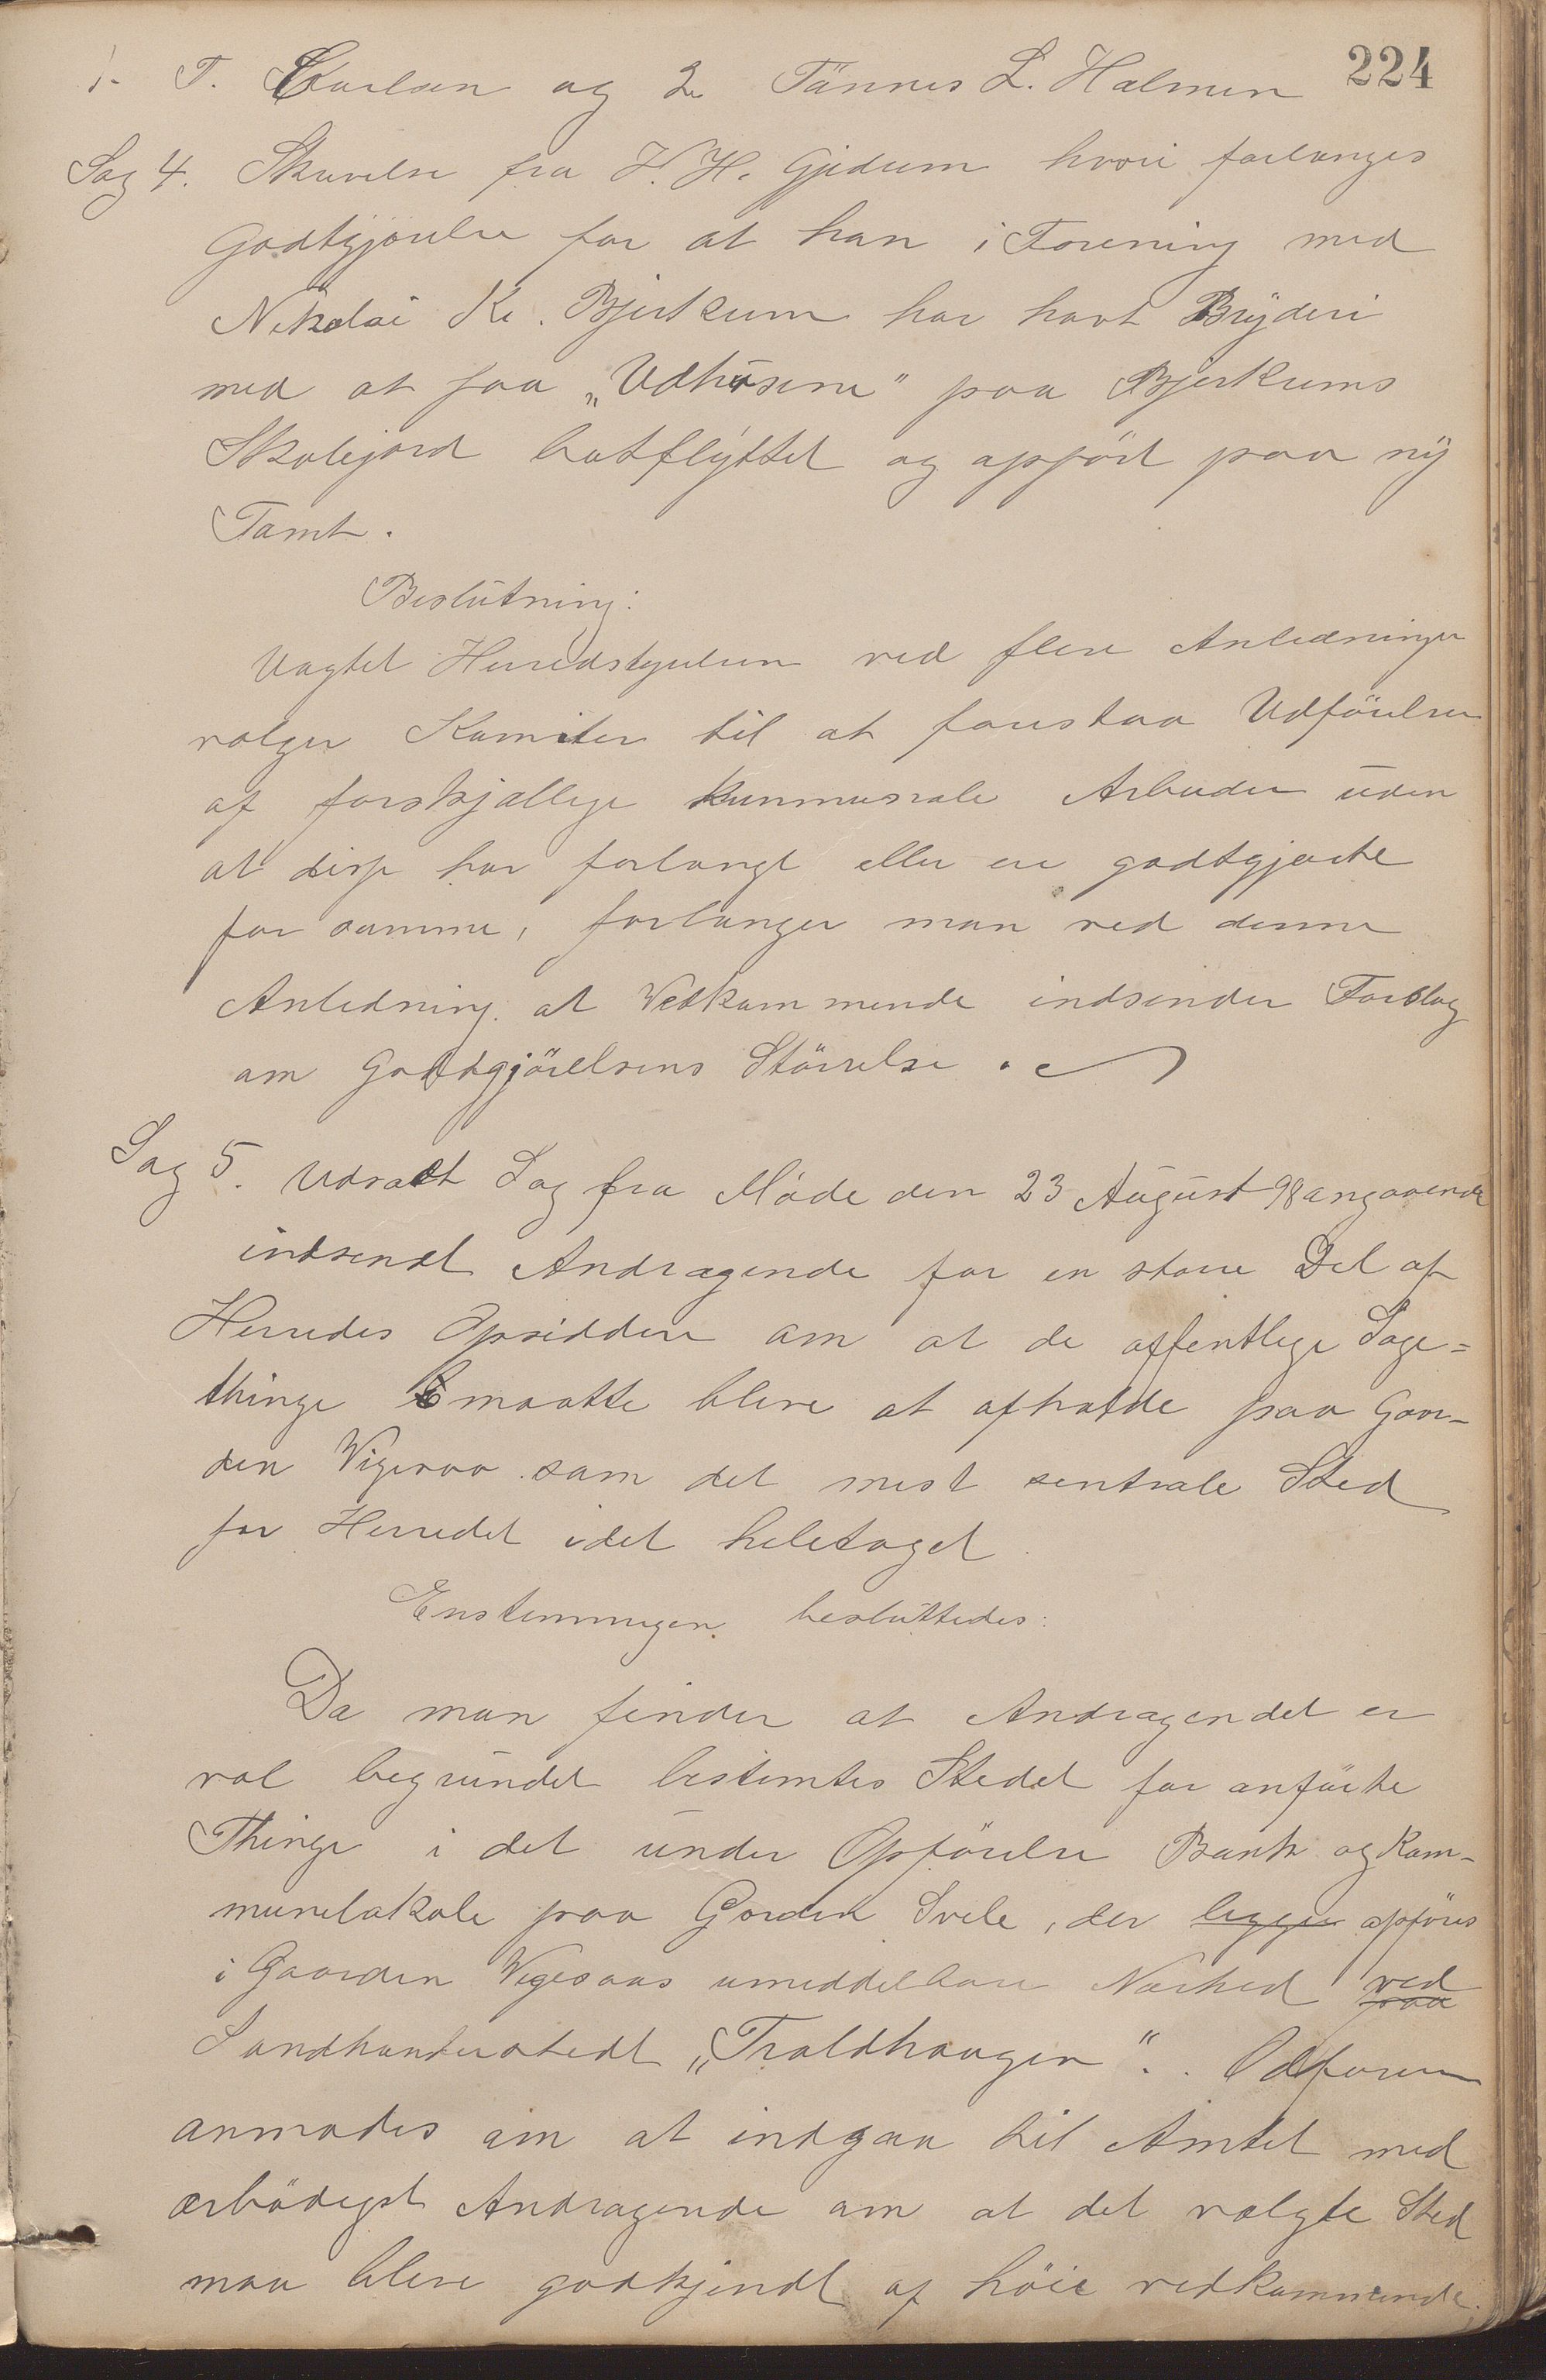 224
1. T. Carlsen og 2. Tännes L. Halmen
Sag 4. Skrivelse fra H. H. Gjedum hvori forlanges
Godtgjörelse for at han i Forening med
Nikolai Kr. Bjerkum har havt Brÿderi
med at faa „Udhüsene" paa Bjerkums
Skolejord bortflÿttet og opfört paa nÿ
Tomt.
Beslütning:
Uagtet Herredstyrelsen ved flere Anledninger
valger Komiter til at forestaa Udförelsen
af forskjællige kummunale Arbeider üden
at disse har forlangt eller er godtgjorte
for samme, forlanger man ved denne
Anledning at Vedkommende indsender Forslag
om Godtgjörelsens Störrelse.
Sag 5. Udsatt Sag fra Möde den 23 Aügüst 98 angaaende
indsendt Andragende for en storre Del af
Herredes Opsiddere om at de offentlige Sage=
thinge maatte blive at afholde paa Gaar-
den Vigesaa som det mest sentrale Sted
for Herredet idet heletaget
Enstemmigen beslüttedes:
Da man finder at Andragendet er
vel begründet bestemtes Stedet for anförte
Thinge i det ünder Opförelse Bank og Kom-
munelokale paa Gorden Svele, der ligger opföres
i Gaarden Vigesaas umiddelbare Nærhed paa ved
Landhandlerstedt „Troldhaugen". Ordföreren
anmodes om at indgaa til Amtet med
ærbödigst Andragende om at det valgte Sted
maa blive godkjendt af höie vedkommende.